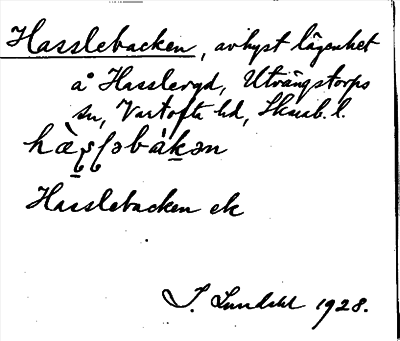 Hasslebacken, avhyst lägenhet
å Hasslervd, Utvängstorps
sn, Vartofta hd, Skarab. l.
hὰʂʂləbákən
Hasslebacken ek
I. Lundahl 1928.